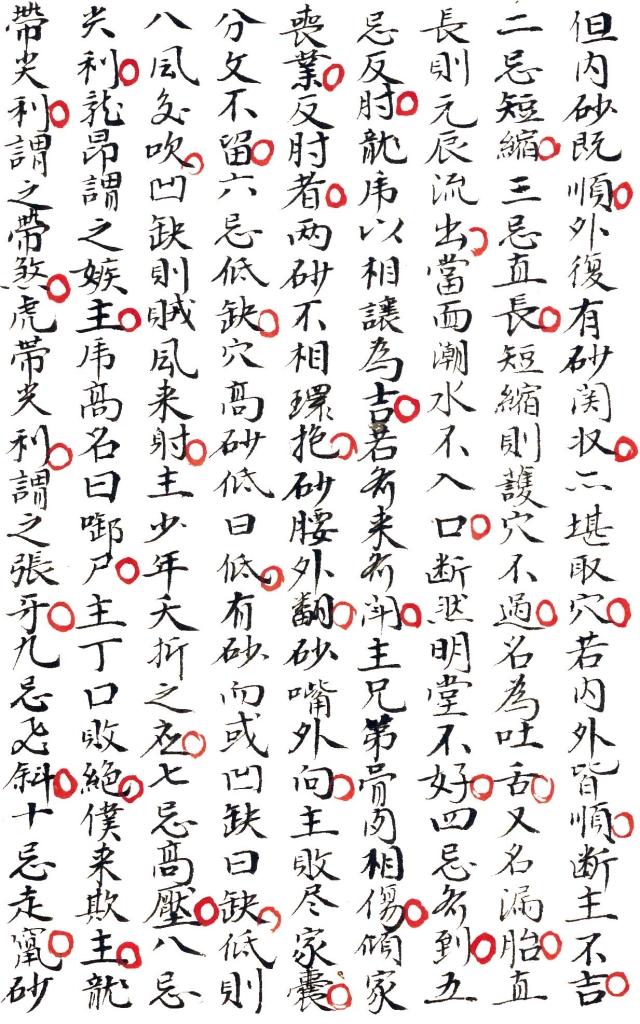 但内砂既順外復有砂関收亦堪取穴若内外皆順断主不吉
二忌短縮三忌直長短縮則護穴不過名為吐舌又名漏胎直
長則元辰流出當面潮水不入口断然明堂不好四忌斉到五
忌反肘龍虎以相讓為吉若斉来斉闘主兄第骨肉相傷傾家
喪業反肘者两砂不相環抱砂腰外翻砂嘴外向主敗尽家囊
分文不留六忌低缺穴高砂低曰低有砂而或凹缺曰缺低則
八風交吹凹缺則賊風来射主少年夭折之应七忌高壓八忌
尖利龍昂謂之嫉主虎高名曰啣尸主丁口敗絕僕来欺主龍
帶尖利謂之帶煞虎帶尖利謂之張牙九忌飞斜十忌走竄砂